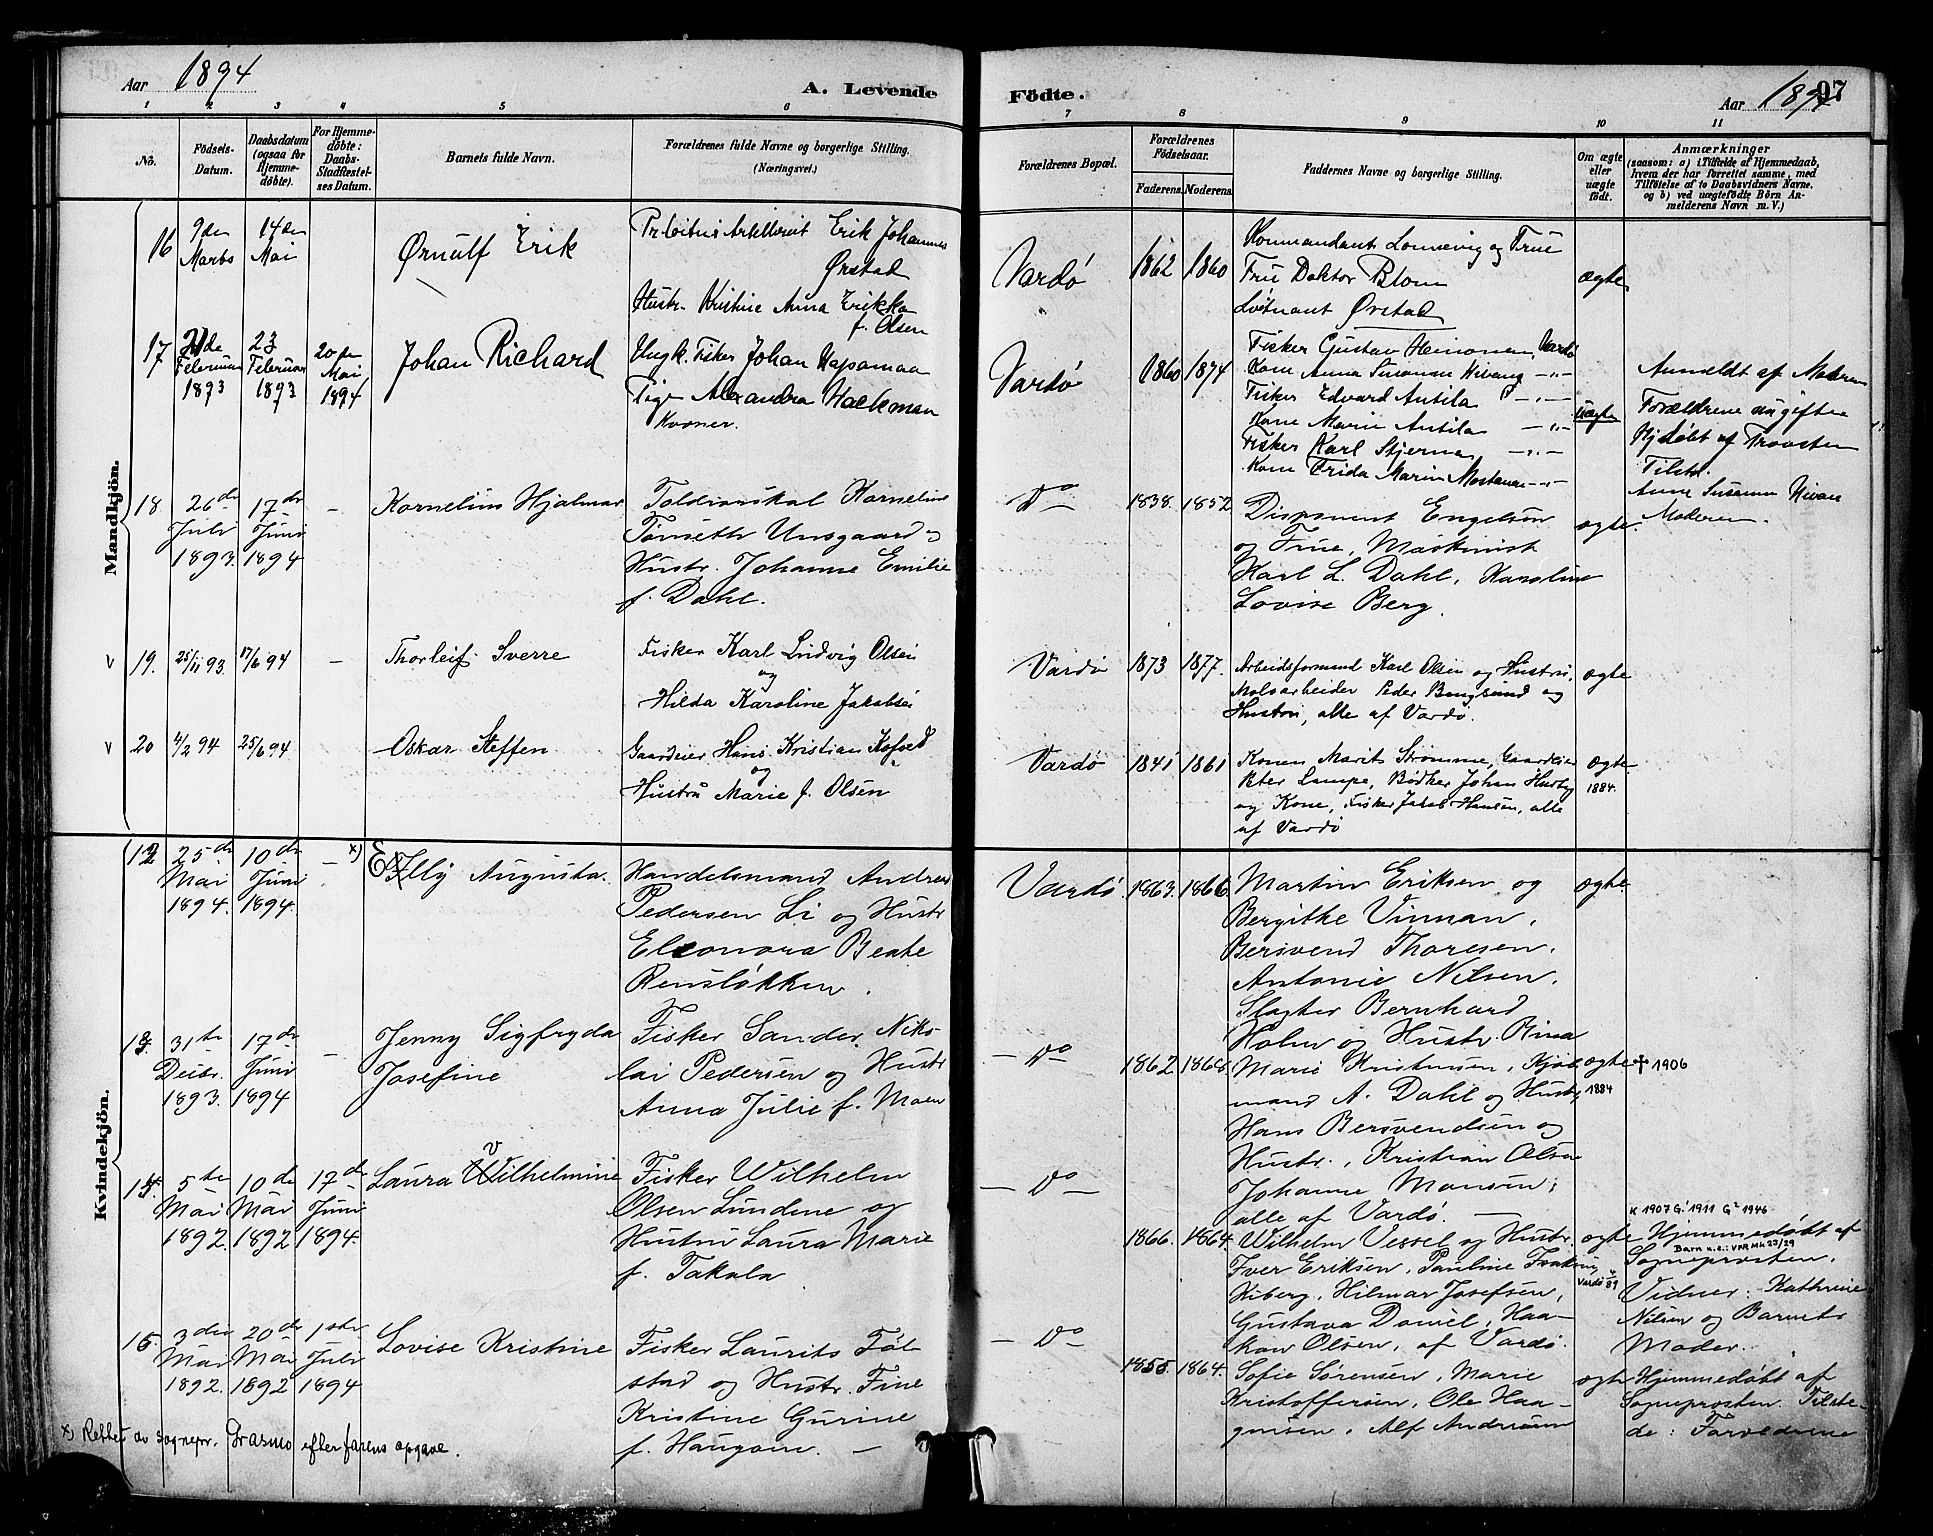 Aar 1894
A. Levende
Födte.
Aar 1894
97
1 2 3 4 5 6 7 8 9 10 11
No.
Födsels-
Datum.
Daabsdatum
(ogsaa for
Hjemme-
døbte).
For Hjemme-
døbte:
Daabs-
Stadfæstel-
ses Datum.
Barnets fulde Navn.
Forældrenes fulde Navne og borgerlige Stilling.
(Næringsvei.)
Forældrenes Bopæl.
Forældrenes
Födselsaar.
Faderens. Moderens.
Faddernes Navne og borgerlige Stilling.
Om ægte
eller
uægte
født.
Anmærkninger
(saasom: a) i Tilfælde af Hjemmedaab,
hvem der har forrettet samme, med
Tilføielse af to Daabsvidners Navne.
og b) ved uægtefødte Børn An-
melderens Navn m. V.)
Mandkjön.
16
9de
Marts
14de
Mai
Ørnulf Erik
Erik Johannes
Ørstad
Hustr. Kristine Anna Erikka
f. Olsen
Vardø
1862 1860
Kommandant Lonnevig og Frue
Frue Doktor Blom
Løtnant Ørstad
ægte
17
Februar
1893
23
Februar
1893
20de
Mai
1894
Johan Richard
Ungk. Fisker Johan
Pige Alexandra Hackman
Kvæner.
Vardø
1860 1874
Fisker Gustav Heinonen, Vardø
Kone Anna Susanna Nivang -"-
Fisker Edvard Antila -"-
Kone Maria Antila -"-
Fisker Karl Stjerna -"-
Kone Frida Maria -"-
uægte
Anmeldt af Moderen
Forældrene ugifte
Hjdøbt af Provsten
Tilst.
Anna Susanna Nivan
Moderen.
18
26de
Juli
1893.
17de
Juni
1894
-
Kornelius Hjalmar
Kornelius
Tønseth Unsgaard
Hustr. Johanne Emilie
f. Dahl.
Do
1838. 1852
Disponent Engelsen
og Frue, Maskinist
Karl L. Dahl, Karoline
Lovise Berg.
ægte.
v 19. 25/11 93. 17/6 94 -
Thorleif Sverre
Fisker Karl Ludvig Olsen
og
Hilda Karoline Jakobsen
Vardø 1873 1877.
Arbeidsformand Karl Olsen og Hustru,
Moloarbeider Peder Bengsund og
Hustru, alle af Vardø.
ægte
v 20 4/2 94 25/6 94
Oskar Steffen
Gaardeier Hans Kristian Kofoed
og
Hustru Marie f. Olsen
Vardø 1841 1861
Konen Marit Strømme, Gaardeier
Peter Lampe, Bødker Johan Husby
og Kone, Fisker Jakob Hansen, alle
af Vardø
ægte
1884.
Kvindekjön.
12
25de
Mai
1894.
10de
Juni
1894.
- x)
Elly Augusta.
Handelsmand Andreas
Pedersen Li og Hustr
Eleonora Beate
Rensløkken.
Vardø 1863. 1866.
Martin Eriksen og
Bergithe Vinnan,
Bersvend Thoresen,
Antonie Nilsen,
Slagter Bernhard
Holm og Hustr. Rina
ægte.
13.
31te
Decbr.
1893.
17de
Juni
1894
-
Jenny Sigfryda
Josefine
Fisker Sander Niko-
lai Pedersen og Hustr
Anna Julie f. Moen
- Do
1862 1868
Marie Kristensen, Kjøb-
mand A. Dahl og Hustr,
Hans Bersvendsen og
Hustr., Kristian Olsen
Johanne Monsen,
alle af Vardø.
ægte
1884
✝ 1906
14.
5te
Mai
1892.
10de
Mai
1892
17de
Juni
1894.
Laura Vilhelmine
Fisker Wilhelm
Olsen Lundene og
Hustru Laura Marie
f. Takala
- Do -
1866. 1864.
Wilhelm Vessel og Hustr
Iver Eriksen, Pauline
Kiberg, Hilmar Josefsen,
Gustava Daniel, Haa-
kon Olsen, af Vardø.
ægte
Vardø 4/89
K 1907 G.1 1911 G2 1946
Hjemmedøbt af
Barn n.e.: VPR Mk 23/29
Sogneprosten.
Vidner: Kathrine
Nilsen og Barnets
Moder.
15.
3die
Mai
1892.
20de
Mai
1892
1ste
Juli
1894
Lovise Kristine
Fisker Laurits Føl-
stad og Hustr. Fine
Kristine Gurine
f. Haugom. -
- Do
1855. 1864.
Sofie Sørensen, Marie
Kristoffersen, Ole Haa-
gensen, Alf Andersen
ægte
Hjemmedøbt af
Sogneprosten. Tilste-
de: Forældrene
x) Rettet av sognepr. Grasmo efter farens opgave.